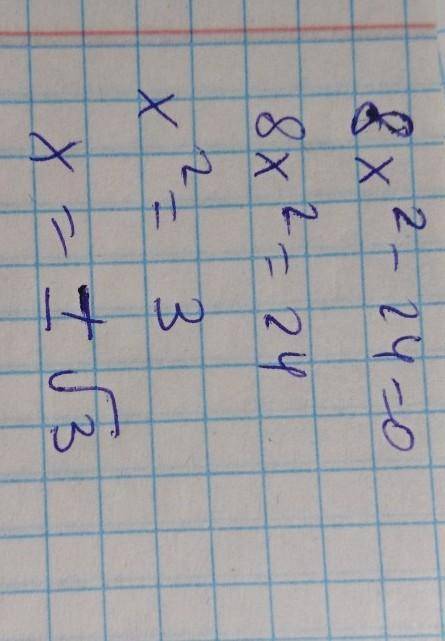 8x² - 24 = 0
8x² = 24
x² = 3
x = ±√3